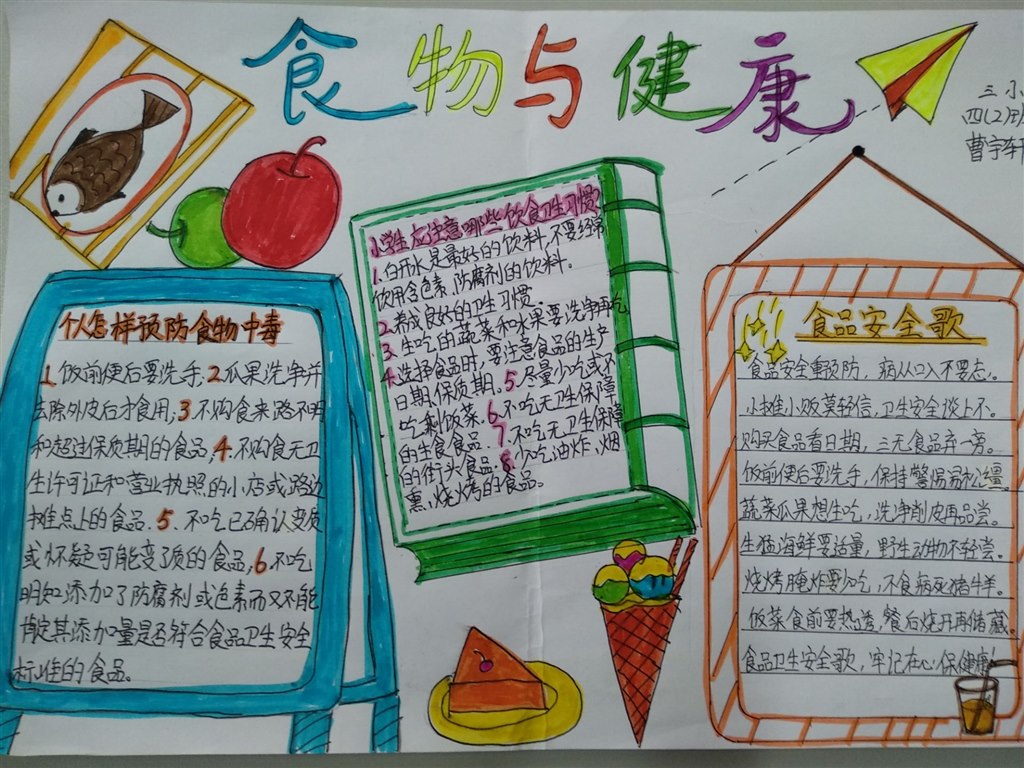 食物与健康
三小
四(2)班
曹宇轩
个人怎样预防食物中毒
1.饭前便后要洗手,2瓜果洗净并
去除外皮后才食用,3不购食来路不明
和超过保质期的食品,4.不购食无卫
生许可证和营业执照的小店或路边
摊点上的食品.5.不吃已确认变质
或怀疑可能变了质的食品,6不吃
明知添加了防腐剂或色素而又不能
肯定其添加量是否符合食品卫生安全
标准的食品。
小学生应注意哪些饮食卫生习惯
1.白开水是最好的饮料,不要经常
饮用含色素,防腐剂的饮料。
2.养成良好的卫生习惯.
3.生吃的蔬菜和水果要洗净再吃
4.选择食品时,要注意食品的生产
日期,保质期.5.尽量少吃或不
吃剩饭菜.6.不吃无卫生保障
的生食食品.7.不吃无卫生保障
的街头食品.8.少吃油炸,烟
熏,烧烤的食品。
食品安全歌
食品安全重预防,病从口入不要忘。
小摊小贩莫轻信,卫生安全谈上不。
购买食品看日期,三无食品弃一旁。
饭前便后要洗手,保持警惕易松缰。
蔬菜瓜果想生吃,洗净削皮再品尝。
生猛海鲜要适量,野生动物不轻尝。
烧烤腌炸要少吃,不食病死猪牛羊。
饭菜食前要热透,餐后烧开再储藏。
食品卫生安全歌,牢记在心保健康!